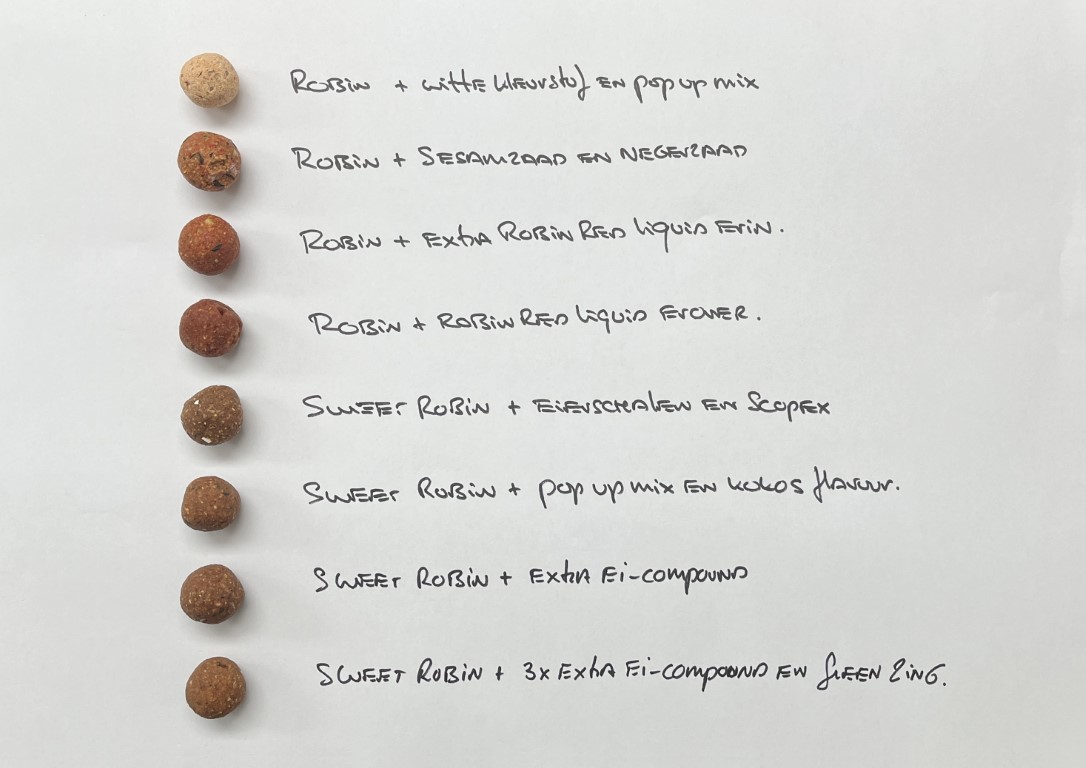 Robin + witte kleurstof en pop up mix
Robin + Sesamzaad en negerzaad
Robin + Extra Robin Red liquid erin.
Robin + Robin Red liquid erover.
Sweet Robin + eierschalen en Scopex
Sweet Robin + pop up mix en kokos flavour.
Sweet Robin + extra ei-compound
Sweet Robin + 3x extra ei-compound en green zing.